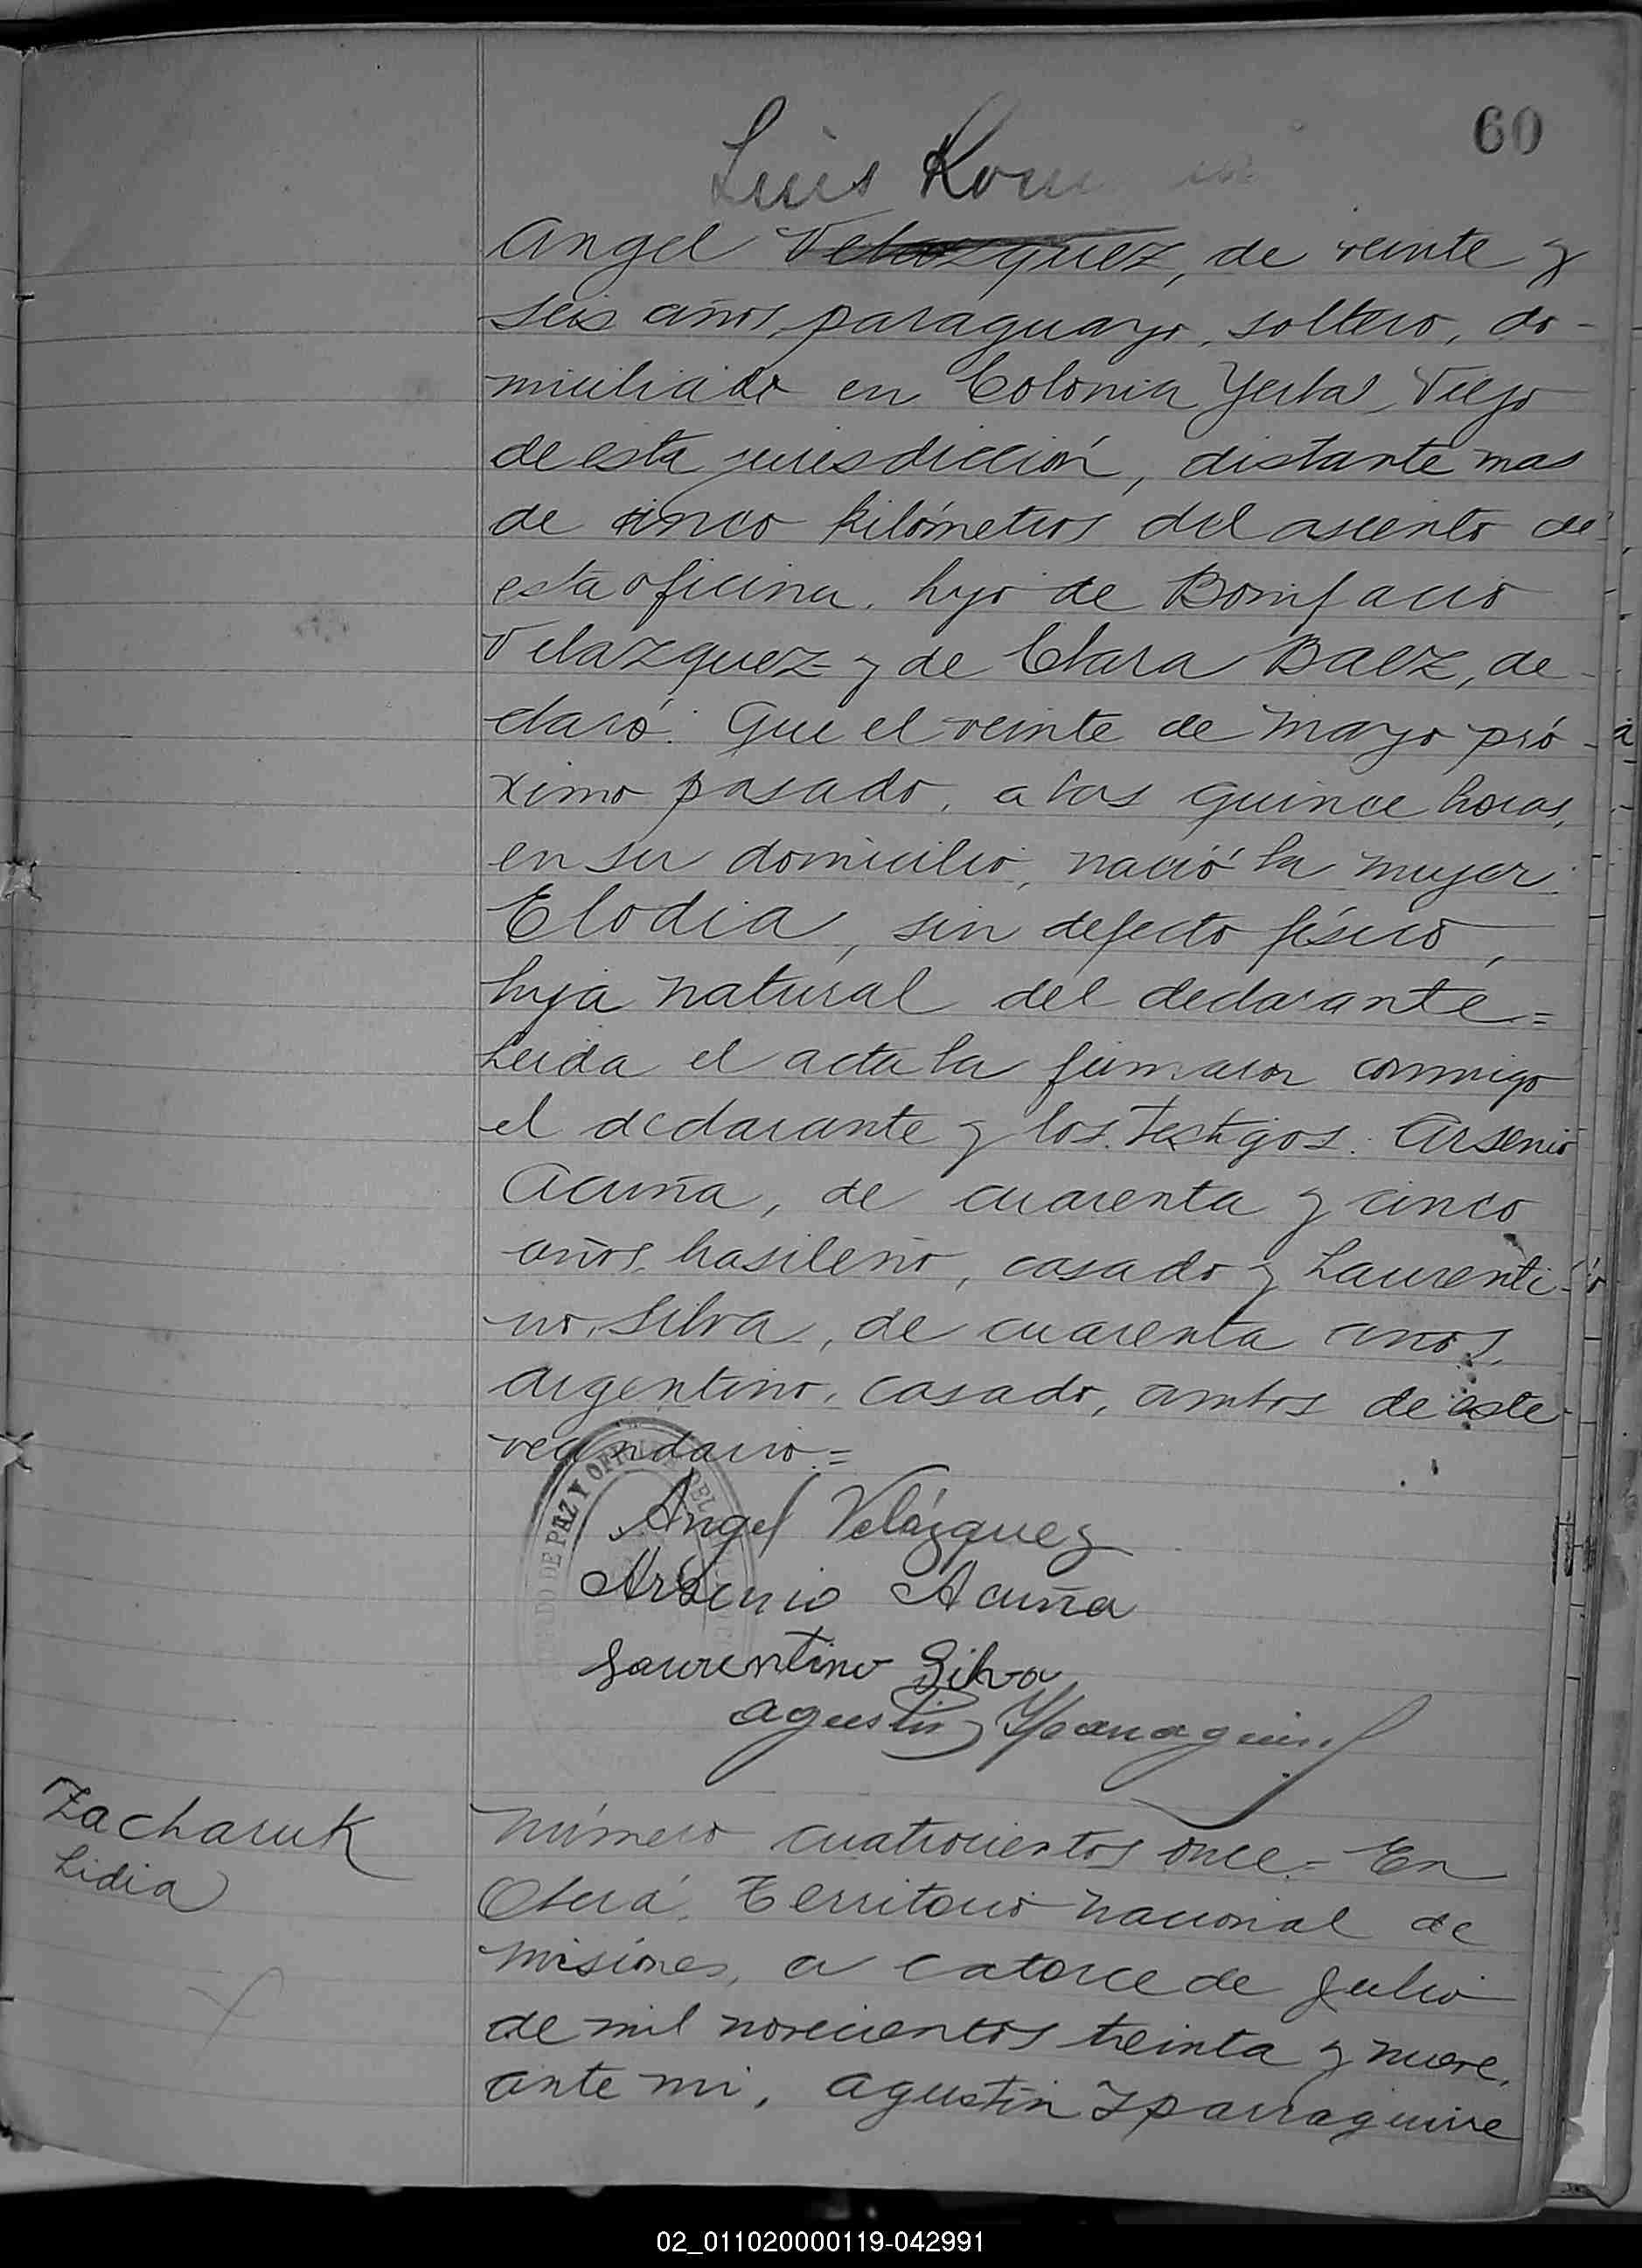 60
Luis Rom
Angel Velazquez, de veinte y
seis años, paraguayo, soltero, do-
miciliado en Colonia Yerbal Viejo
de esta jurisdicción, distante mas
de cinco kilómetros del asiento de
esta oficina, hijo de Bonifacio
Velazquez y de Clara Baez, de-
claró: Que el veinte de mayo pró-
ximo pasado, a las quince horas,
en su domicilio, nació la mujer
Elodia, sin defecto físico,
hija natural del declarante=
Leida el acta la firmaron conmigo
el declarante y los testigos: Arsenio
Acuña, de cuarenta y cinco
años, brasileño, casado y Laurenti-
no Silva, de cuarenta años,
argentino, casado, ambos de este
vecindario.=
DE PAZ Y
Angel Velázquez
Arsenio Acuña
Laurentino Silva
Agustin Yparraguirre
Zacharuk
Lidia
Número cuatrocientos once.= En
Oberá, Territorio nacional de
Misiones, a catorce de Julio
de mil novecientos treinta y nueve,
ante mi, Agustin Yparraguirre
02_011020000119-042991